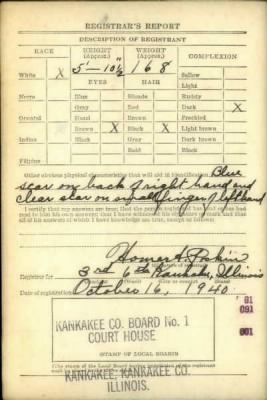 REGISTRAR'S REPORT
DESCRIPTION OF REGISTRANT
RACE HEIGHT (Approx.) WEIGHT (Approx.) COMPLEXION
5'-10½ 168
White X Sallow
EYES HAIR Light
Negro Blue Blonde Ruddy
Gray Red Dark X
Oriental Hazel Brown Freckled
Brown X Black X Light brown
Indian Black Gray Dark brown
Bald Black
Filipino
Other obvious physical characteristics that will aid in identification Blue
scar on back of right hand and
clear scar on small finger left hand
I certify that my answers are true; that the person registered has read or has had
read to him his own answers; that I have witnessed his signature or mark and that
all of his answers of which I have knowledge are true, except as follows:
Homer A.
Registrar for 3rd 6th Kankakee, Illinois
Date of registration October 16, 1940
KANKAKEE CO. BOARD No. 1
COURT HOUSE
STAMP OF LOCAL BOARD
KANKAKEE, KANKAKEE CO.
ILLINOIS.